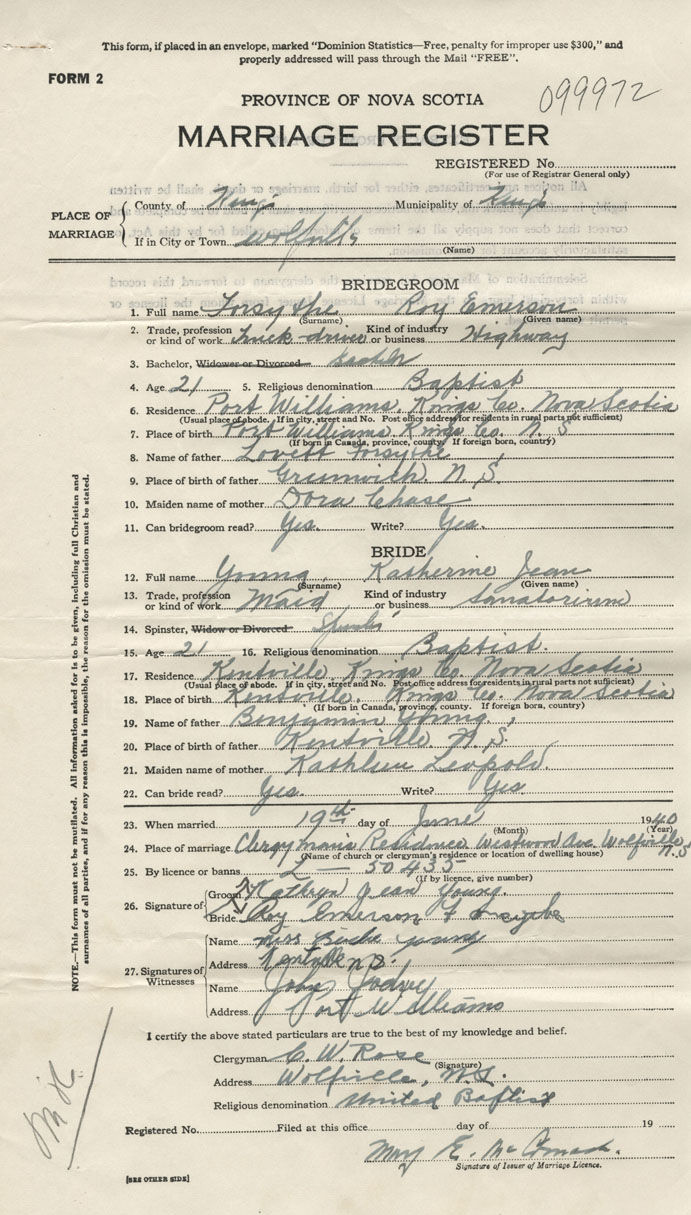 This form, if placed in an envelope, marked "Dominion Statistics—Free, penalty for improper use $300," and
properly addressed will pass through the Mail "FREE".
FORM 2
PROVINCE OF NOVA SCOTIA
099972
MARRIAGE REGISTER
REGISTERED No.
(For use of Registrar General only)
PLACE OF MARRIAGE
County of Kings Municipality of Kings
If in City or Town Wolfville
(Name)
BRIDEGROOM
1. Full name Forsythe Roy Emerson
(Surname) (Given name)
2. Trade, profession or kind of work Truck-driver Kind of industry or business Highway
3. Bachelor, Widower or Divorced Bachelor
4. Age 21 5. Religious denomination Baptist
6. Residence Port Williams, Kings Co. Nova Scotia
(Usual place of abode. If in city, street and No. Post office address for residents in rural parts not sufficient)
7. Place of birth Port Williams Kings Co. N. S
(If born in Canada, province, county. If foreign born, country)
8. Name of father Lovett Forsythe
9. Place of birth of father Greenwich. N. S.
10. Maiden name of mother Dora Chase
11. Can bridegroom read? Yes. Write? Yes.
BRIDE
12. Full name Young, Katherine Jean
(Surname) (Given name)
13. Trade, profession or kind of work Maid Kind of industry or business Sanatorium
14. Spinster, Widow or Divorced
15. Age 21 16. Religious denomination Baptist.
17. Residence Kentville Kings Co. Nova Scotia
(Usual place of abode. If in city, street and No. Post office address for residents in rural parts not sufficient)
18. Place of birth Kentville. Kings Co. Nova Scotia
(If born in Canada, province, county. If foreign born, country)
19. Name of father Benjamin Young,
20. Place of birth of father Kentville. N. S.
21. Maiden name of mother Kathleen Leopold.
22. Can bride read? Yes. Write? Yes.
23. When married 19th day of June 1940
(Month) (Year)
24. Place of marriage Clergyman's Residence Westwood Ave. Wolfville N. S
(Name of church or clergyman's residence or location of dwelling house)
25. By licence or banns L — 50435
(If by licence, give number)
26. Signature of
Groom Kathryn Jean Young.
Bride Roy Emerson Forsythe
27. Signatures of Witnesses
Name Miss young
Address Kentville N.S.
Name John
Address Port Williams
I certify the above stated particulars are true to the best of my knowledge and belief.
Clergyman C. W. Rose
(Signature)
Address Wolfville, N.S.
Religious denomination United Baptist
Registered No. Filed at this office day of 19
Mary E.
Signature of Issuer of Marriage Licence.
[SEE OTHER SIDE]
NOTE.—This form must not be mutilated. All information asked for is to be given, including full Christian and
surnames of all parties, and if for any reason this is impossible, the reason for the omission must be stated.